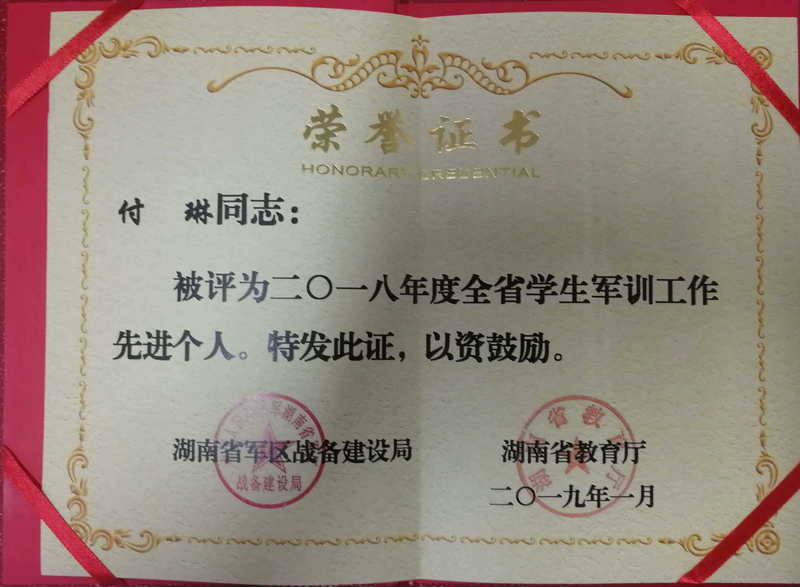 荣誉证书
HONORARY CREDENTIAL
付 琳同志：
被评为二〇一八年度全省学生军训工作
先进个人。特发此证，以资鼓励。
湖南省军区战备建设局
战备建设局
湖南省教育厅
湖南省教育厅
二〇一九年一月